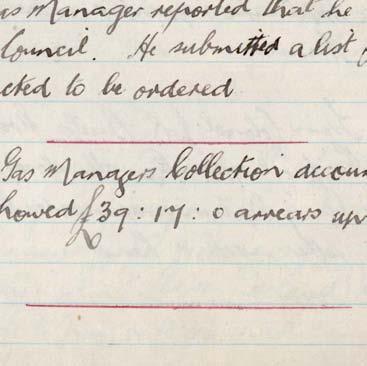 as Manager reported that he
Council. He submitted a list
cted to be ordered
Gas Managers Collection accoun
howed £39 : 17 : 0 arrears up